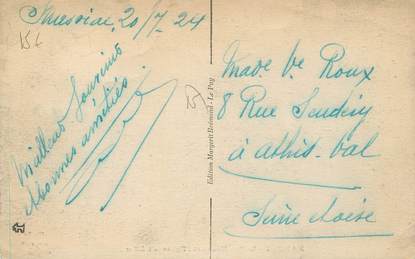 20/7-24
15t
Meilleurs Souvenirs
& bonnes amitiés
Edition Margerit Brémond - Le Puy
Made Ve Roux
8 Rue
à Athis-Val
Seine & Oise